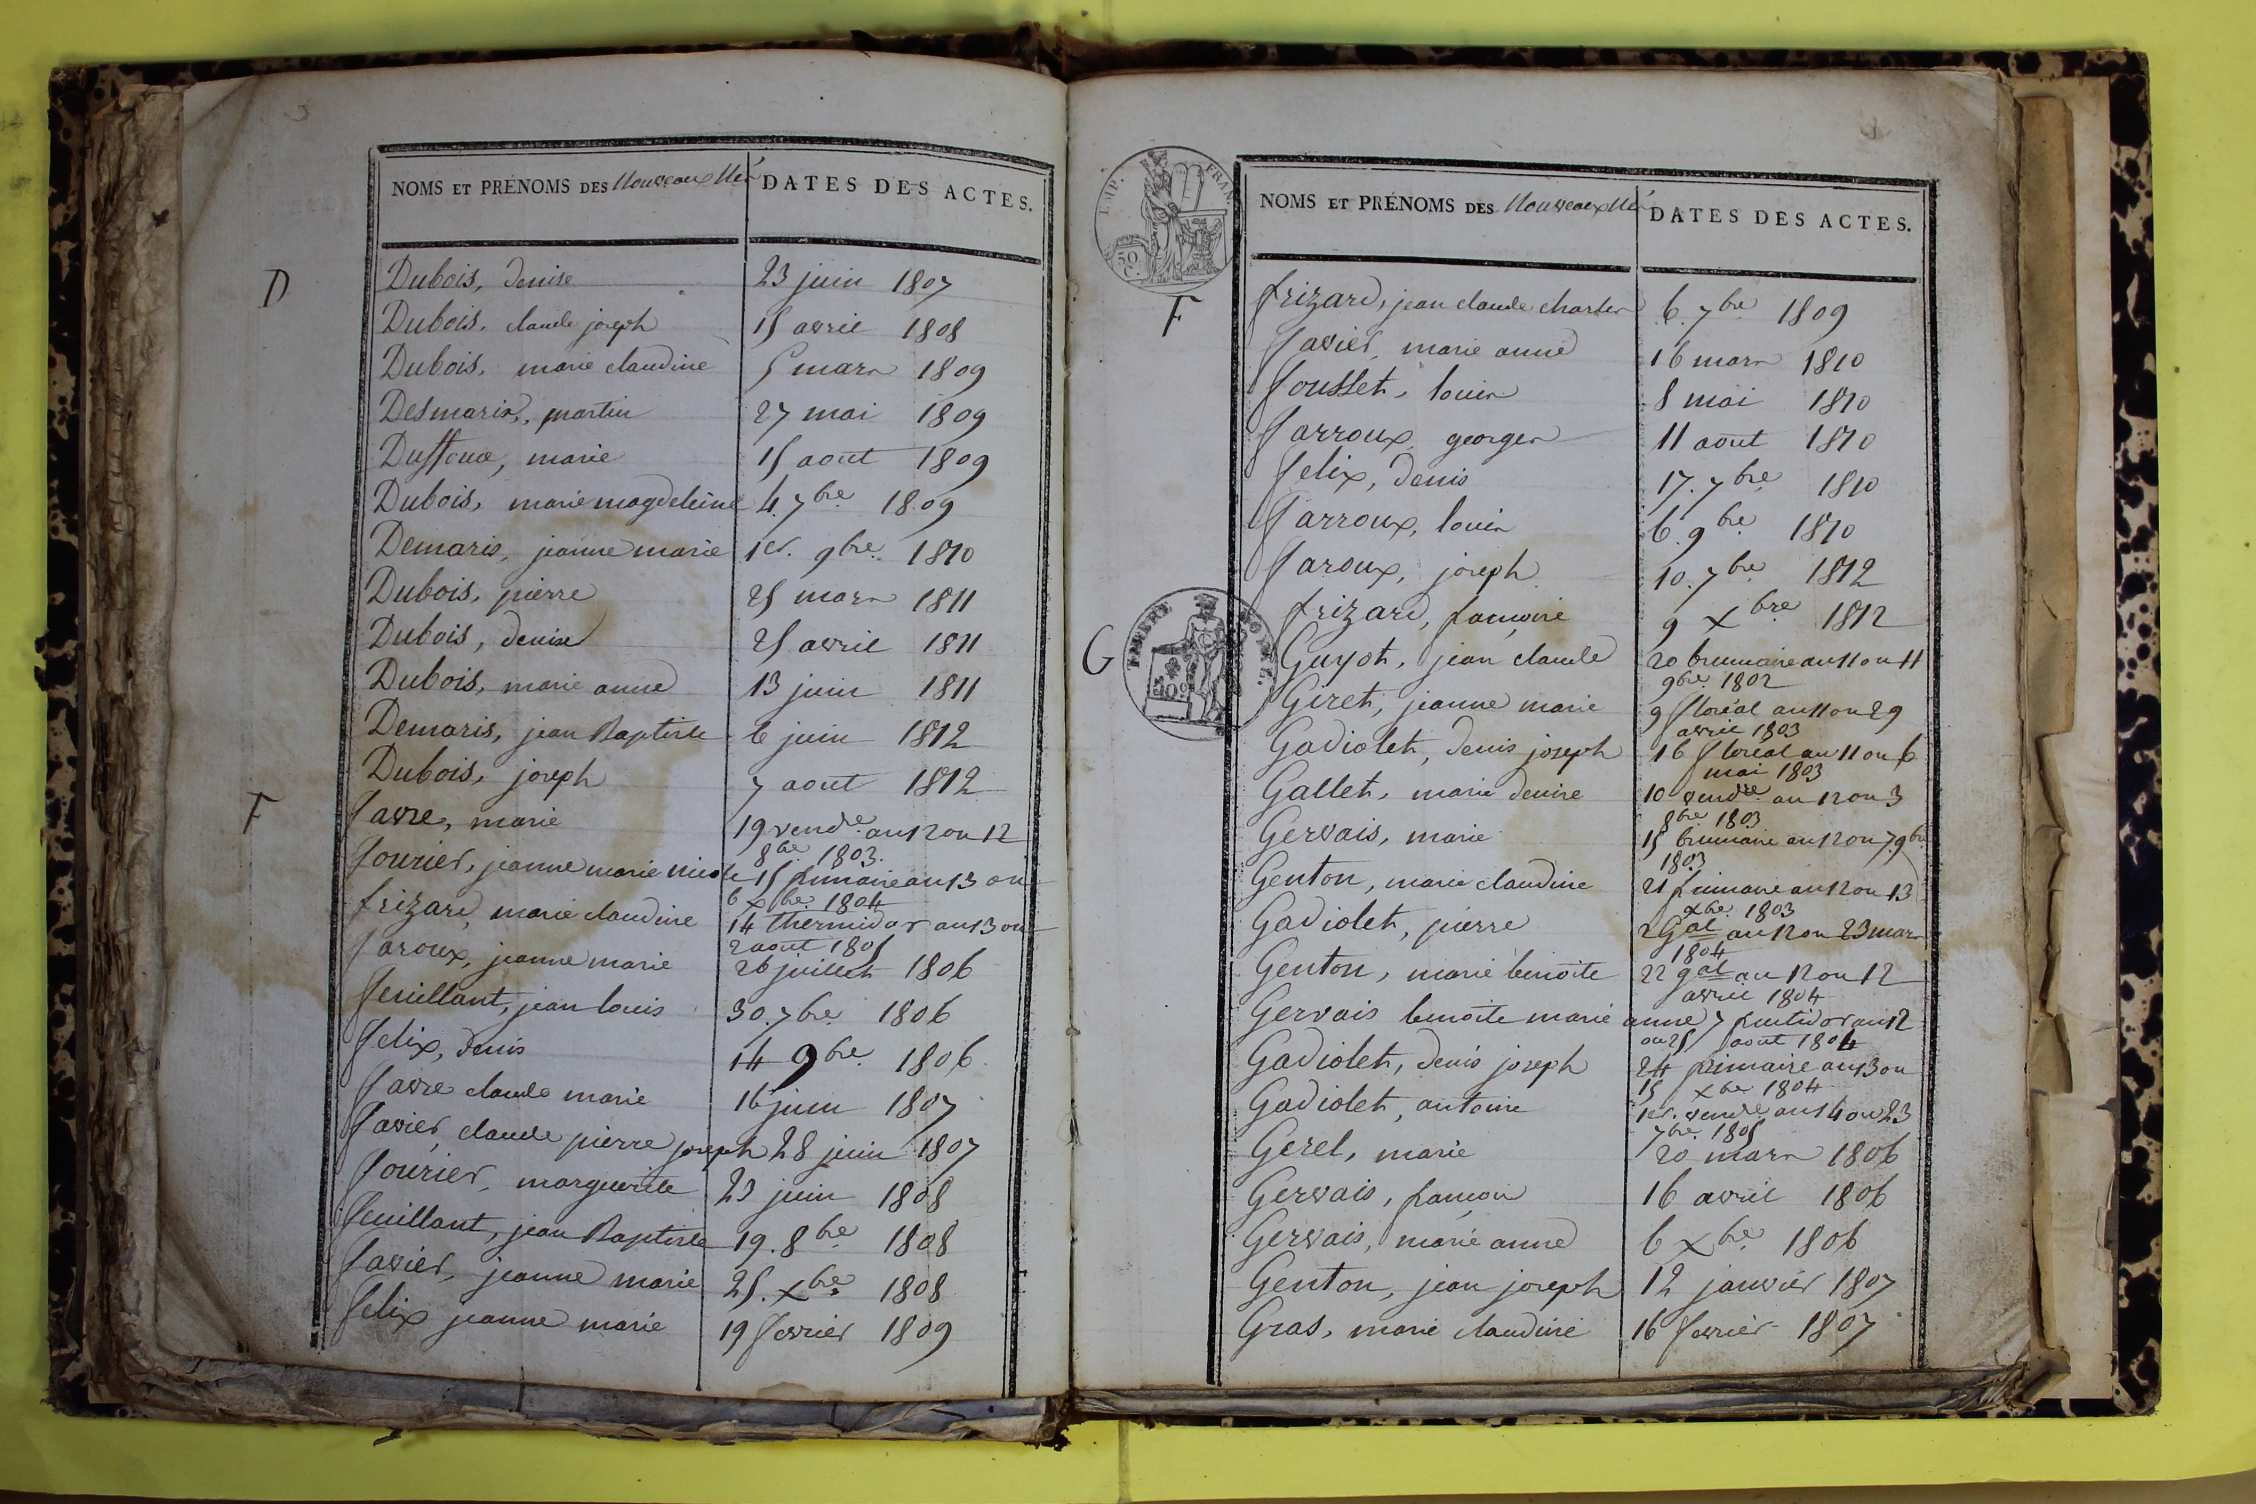 NOMS ET PRÉNOMS DES Nouveaux Nés DATES DES ACTES.
D
Dubois, denise 23 juin 1807
Dubois, claude joseph 15 avril 1808
Dubois, marie claudine 5 mars 1809
Desmaris, martin 27 mai 1809
Duffoux, marie 15 aout 1809
Dubois, marie magdeleine 4. 7bre 1809
Demaris, jeanne marie 1er. 9bre. 1810
Dubois, pierre 25 mars 1811
Dubois, denise 25 avril 1811
Dubois, marie anne 13 juin 1811
Demaris, jean Baptiste 6 juin 1812
Dubois, joseph 7 aout 1812
F
favre, marie 19 vendre. an 12 ou 12
8bre. 1803.
fourier, jeanne marie nicole 15 frimaire an 13 ou
6 xbre. 1804
frizard, marie claudine 14 thermidor an 13 ou
2 aout 1805
faroux, jeanne marie 26 juillet 1806
feuillant, jean louis 30. 7bre. 1806
felix, denis 14 9bre. 1806.
favre claude marie 16 juin 1807
favier, claude pierre joseph 28 juin 1807
fourier, marguerite 23 juin 1808
feuillant, jean Baptiste 19. 8bre 1808
favier, jeanne marie 25. xbre. 1808
felix jeanne marie 19 fevrier 1809
EMP. FRAN.
50 C.
NOMS ET PRÉNOMS DES Nouveaux Nés DATES DES ACTES.
F
frizard, jean claude charles 6. 7bre 1809
favier, marie anne 16 mars 1810
fousset, louis 8 mai 1810
farroux, georges 11 aout 1810
felix, denis 17. 7bre 1810
farroux, louis 6. 9bre 1810
faroux, joseph 10. 7bre 1812
frizard, françoise 9 xbre 1812
G
Guyot, jean claude 20 brumaire an 11 ou 11
9bre 1802
Giret, jeanne marie 9 floréal an 11 ou 29
avril 1803
Gadiolet, denis joseph 16 floréal an 11 ou 6
mai 1803
Gallet, marie denise 10 vendre. an 12 ou 3
8bre 1803
Gervais, marie 15 brumaire an 12 ou 7. 9bre
1803
Genton, marie claudine 21 frimaire an 12 ou 13
xbre. 1803
Gadiolet, pierre 2 Gal an 12 ou 23 mars
1804
Genton, marie benoite 22 gal an 12 ou 12
avril 1804
Gervais benoite marie anne 7 fructidor an 12
ou 25 aout 1804
Gadiolet, denis joseph 24 frimaire an 13 ou
15 xbre 1804
Gadiolet, antoine 1er. vendre. an 14 ou 23
7bre. 1805
Gerel, marie 20 mars 1806
Gervais, françois 16 avril 1806
Gervais, marie anne 6 xbre. 1806
Genton, jean joseph 12 janvier 1807
Gras, marie claudine 16 fevrier 1807